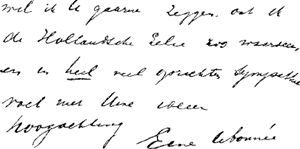 wil ik U gaarne zeggen, dat ik
de Hollandsche Lelie zoo waardeer
en en heel veel oprechte sympathie
voel met Uwe ideeën
Hoogachtend
Eene Abonnée